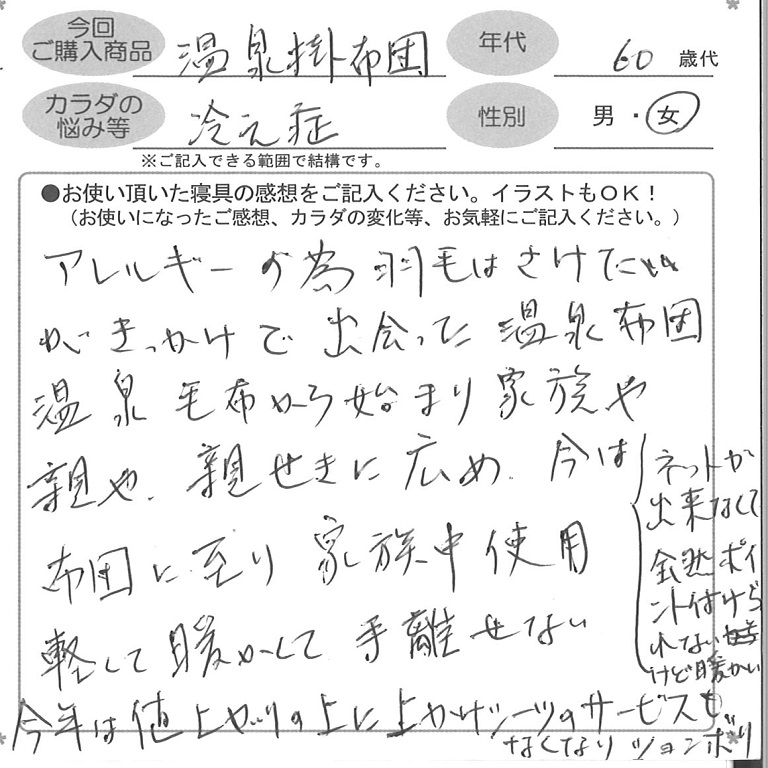 今回
ご購入商品
温泉掛布団
年代
60 歳代
カラダの
悩み等
冷え症
性別
男・女
※ご記入できる範囲で結構です。
●お使い頂いた寝具の感想をご記入ください。イラストもOK！
（お使いになったご感想、カラダの変化等、お気軽にご記入ください。）
アレルギーの為羽毛はさけてたい
がきっかけで出会った温泉布団
温泉毛布から始まり家族や
親や、親せきに広め、今は
布団に至り家族中使用
軽くて暖かくて手離せない
ネットが
出来なくて
全然ポイ
ント付けら
れない
けど暖かい
今年は値上がりの上に上かけシーツのサービスも
なくなりションボリ